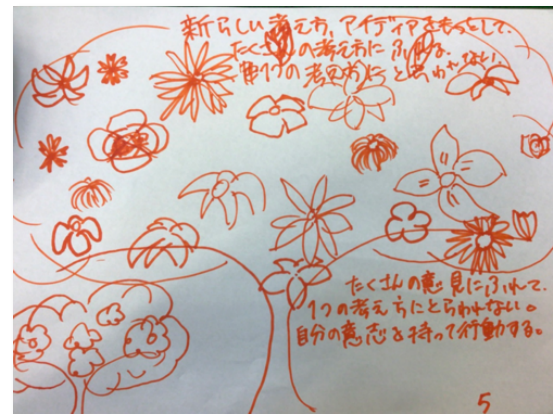 新らしい考え方、アイディアをもっとして、
たくさんの考え方にふれる。
1つの考え方にとらわれない。
たくさんの意見にふれて、
1つの考え方にとらわれない。
自分の意志を持って行動する。
5